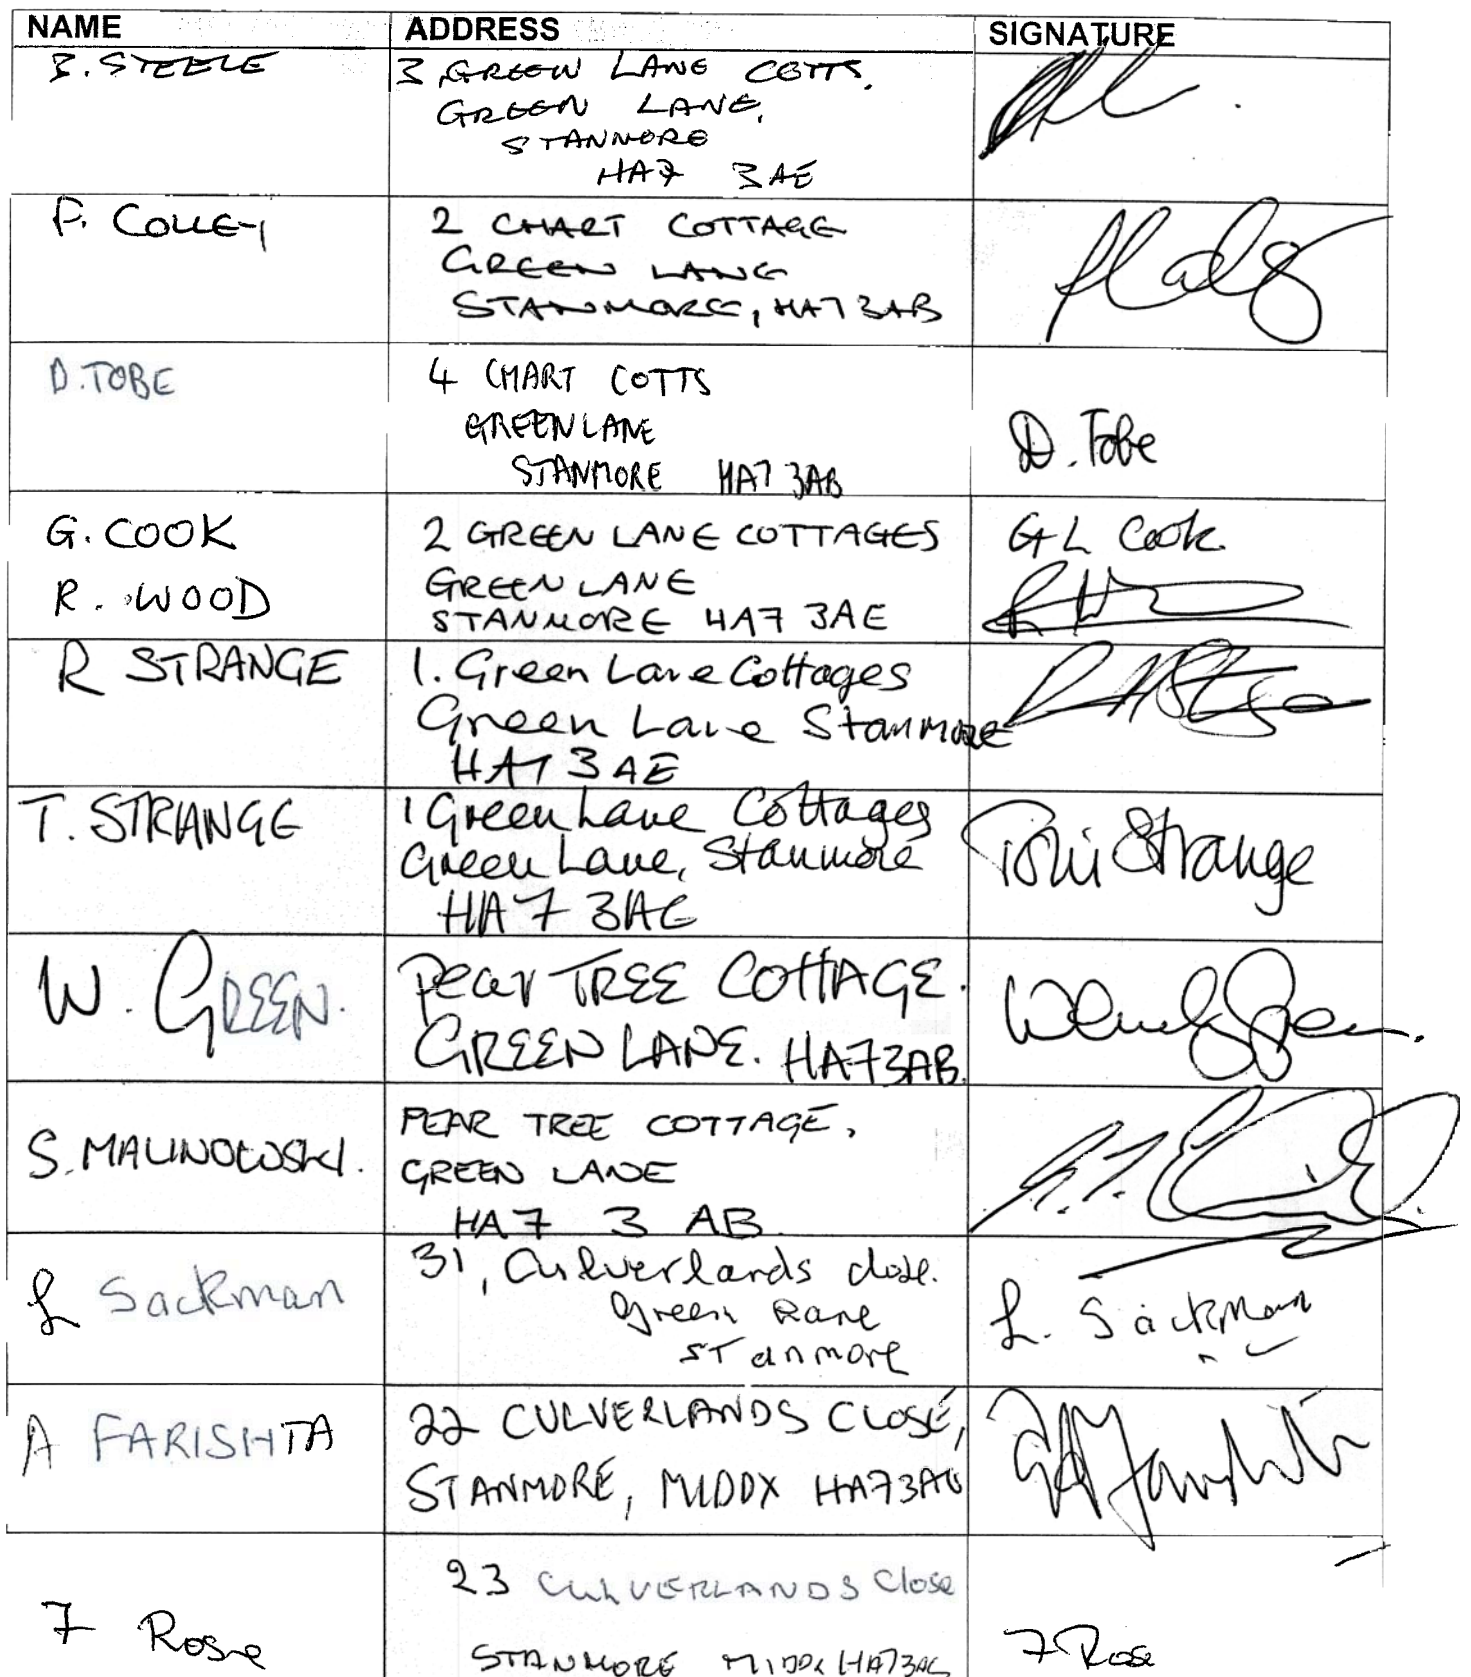 NAME ADDRESS SIGNATURE
B. STEELE 3, GREEN LANE COTTS,
GREEN LANE,
STANMORE
HA7 3AE
P. COLLEY 2 CHART COTTAGE
GREEN LANE
STANMORE, HA7 3AB
D. TOBE 4 CHART COTTS
GREEN LANE
STANMORE HA7 3AB
D. Tobe
G. COOK 2 GREEN LANE COTTAGES G L Cook
R. WOOD GREEN LANE
STANMORE HA7 3AE
R STRANGE 1. Green Lane Cottages
Green Lane Stanmore
HA7 3AE
T. STRANGE 1 Green Lane Cottages
Green Lane, Stanmore Toni Strange
HA7 3AE
W. GREEN. Pear TREE COTTAGE. Wendy Green.
GREEN LANE. HA7 3AB.
S. MALINOWSKI. PEAR TREE COTTAGE,
GREEN LANE
HA7 3 AB.
L Sackman 31, Culverlands close. L. Sackman
Green Lane
Stanmore
A FARISHTA 22 CULVERLANDS CLOSE,
STANMORE, MIDDX HA7 3AG
23 CULVERLANDS Close
7 Rose STANMORE MIDDX HA7 3AG 7 Rose